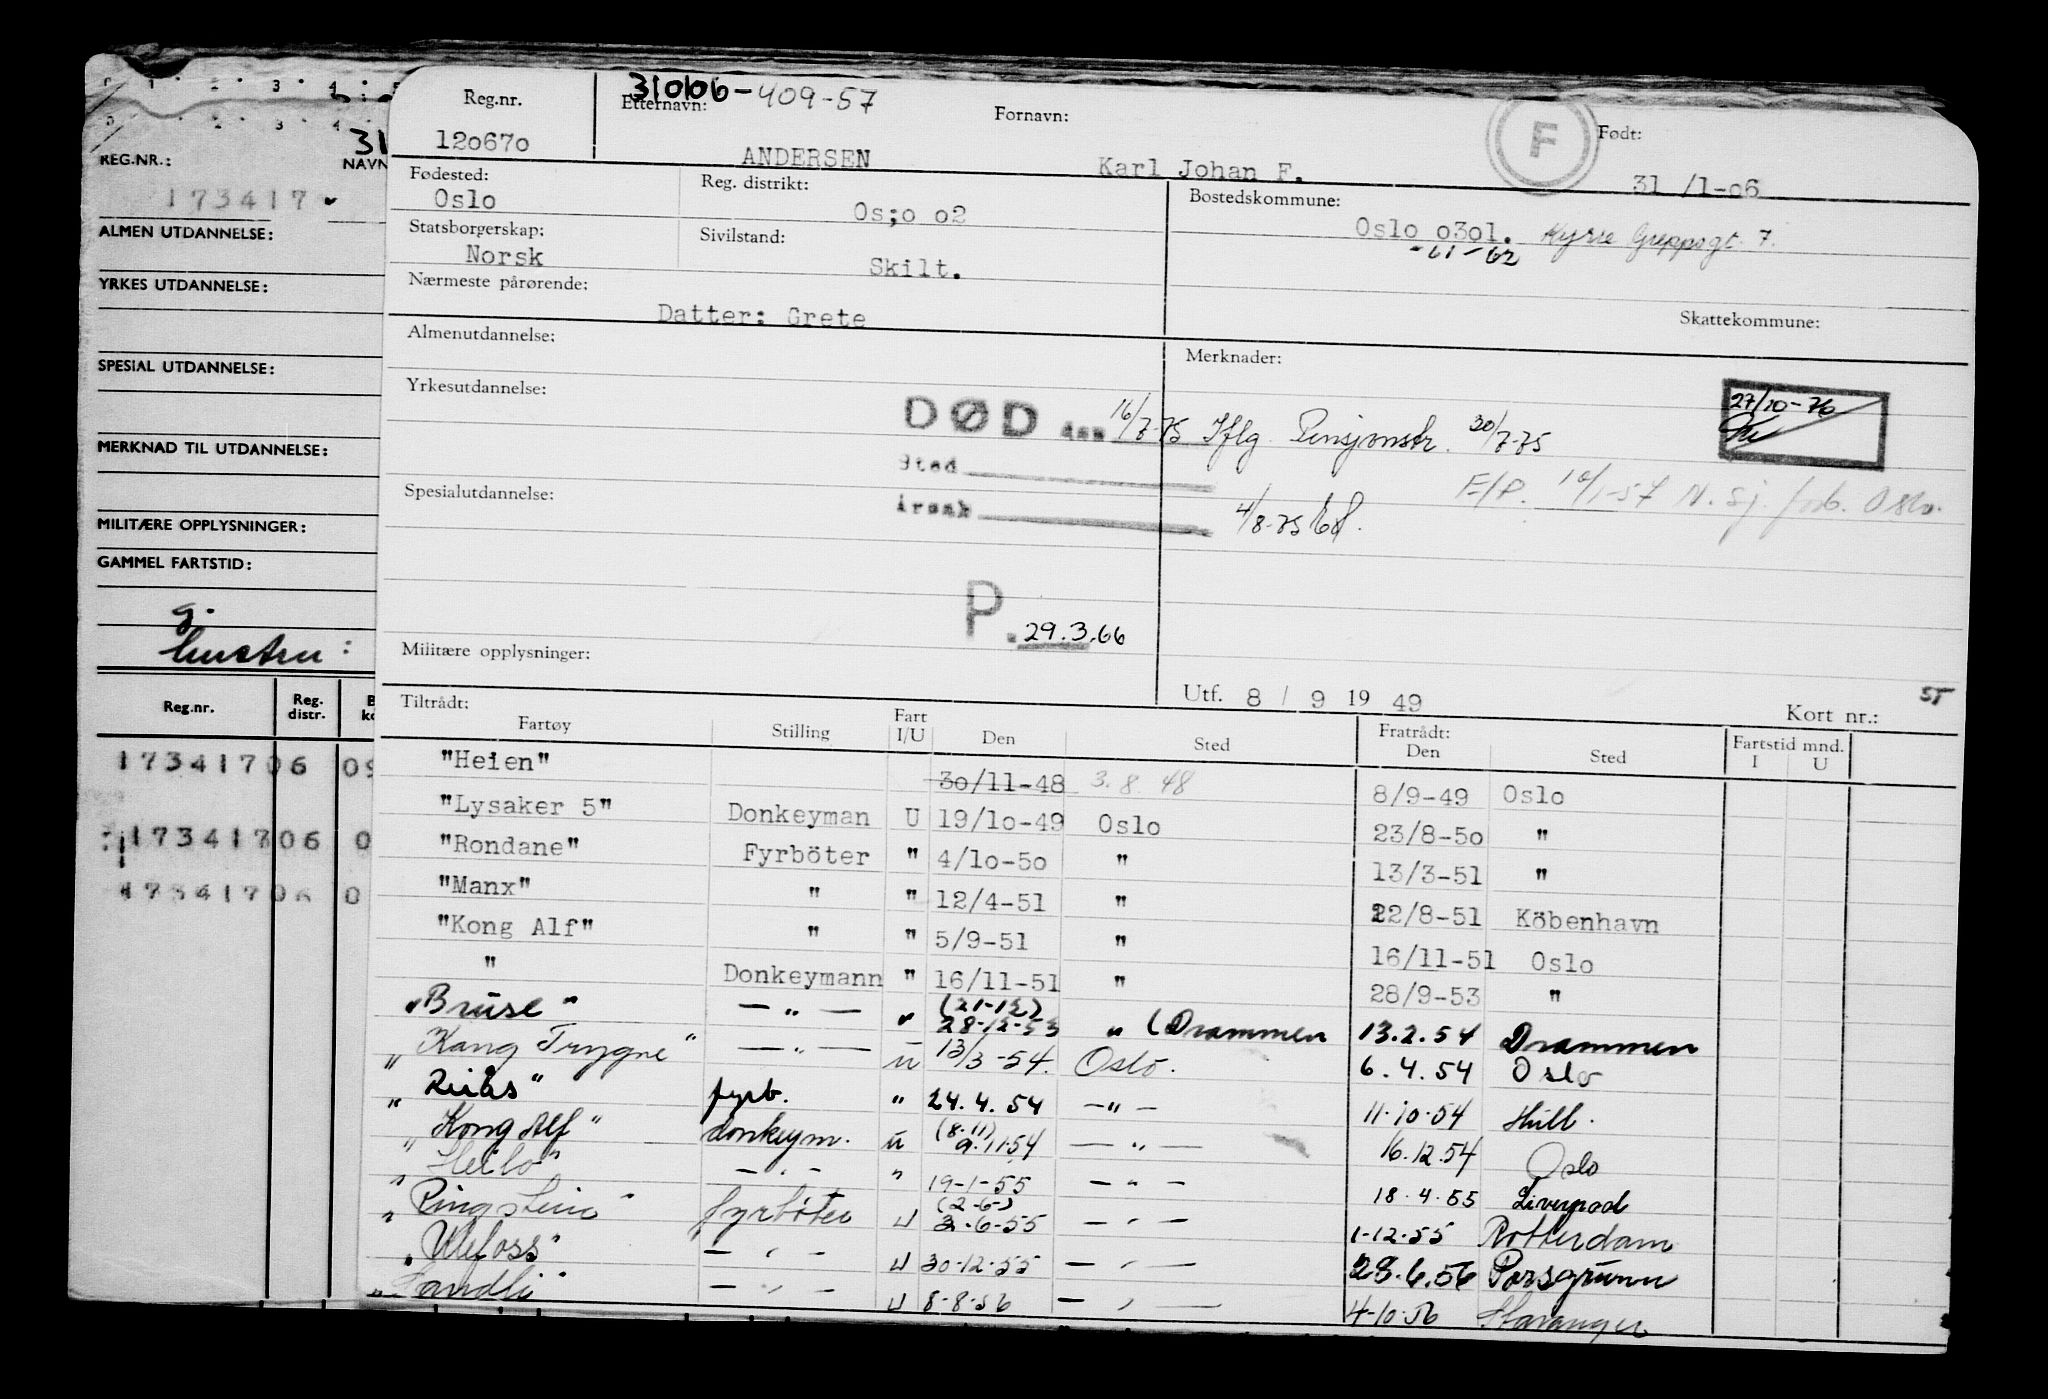 31006-409-57
Reg.nr. Etternavn: Fornavn: F Født:
120670 ANDERSEN Karl Johan F. 31 /1-06
Fødested: Reg. distrikt: Bostedskommune:
Oslo Os;o o2 Oslo o3ol. Kyrre Greppsgt. 7.
-61-62
Statsborgerskap: Sivilstand:
Norsk Skilt.
Nærmeste pårørende:
Datter: Grete Skattekommune:
Almenutdannelse: Merknader:
Yrkesutdannelse: 27/10-76
DØD den 16/7-75 Iflg. Pensjonstr. 30/7-75
Sted
F/P. 1-57 N. Sj. forb. Oslo.
Spesialutdannelse:
Årsak 4/8-75
P. 29.3.66
Militære opplysninger:
Utf. 8 / 9 19 49 Kort nr.: 55
Tiltrådt: Fratrådt: Fartstid mnd.
Fartøy Stilling Fart I/U Den Sted Den Sted I U
"Heien" 30/11-48 3.8.48 8/9-49 Oslo
"Lysaker 5" Donkeyman U 19/10-49 Oslo 23/8-50 "
"Rondane" Fyrböter " 4/10-50 " 13/3-51 "
"Manx" " " 12/4-51 " 22/8-51 Köbenhavn
"Kong Alf" " " 5/9-51 " 16/11-51 Oslo
" Donkeymann " 16/11-51 " 28/9-53 "
"Bruse" — " — " (21-12) 28-12-53 " (Drammen 13.2.54 Drammen
"Kong Trygve" — " — u 13/3-54. Oslo. 6.4.54 Oslo
"Risås" fyrb. " 24.4.54 — " — 11.10.54 Hull.
"Kong Alf" donkeym. u (8.11) 9.11.54 — " — 16.12.54 Oslo
"Heilo" — " — " 19-1-55 — " — 18.4.55 Liverpool
"Ringstein" fyrböter U (2-6-) 3-6-55 — " — 1-12.55 Rotterdam
"Ulefoss" — " — U 30-12-55 — " — 28.6.56 Porsgrunn
"Sandli" — " — U 8-8-56 — " — 4-10-56 Stavanger
0 1 2 3 4 5
2 3 4
31
REG.NR.: NAVN
173417
ALMEN UTDANNELSE:
YRKES UTDANNELSE:
SPESIAL UTDANNELSE:
MERKNAD TIL UTDANNELSE:
MILITÆRE OPPLYSNINGER:
GAMMEL FARTSTID:
Reg.nr. Reg. distr.
17341706 09
17341706 0
17341706 0